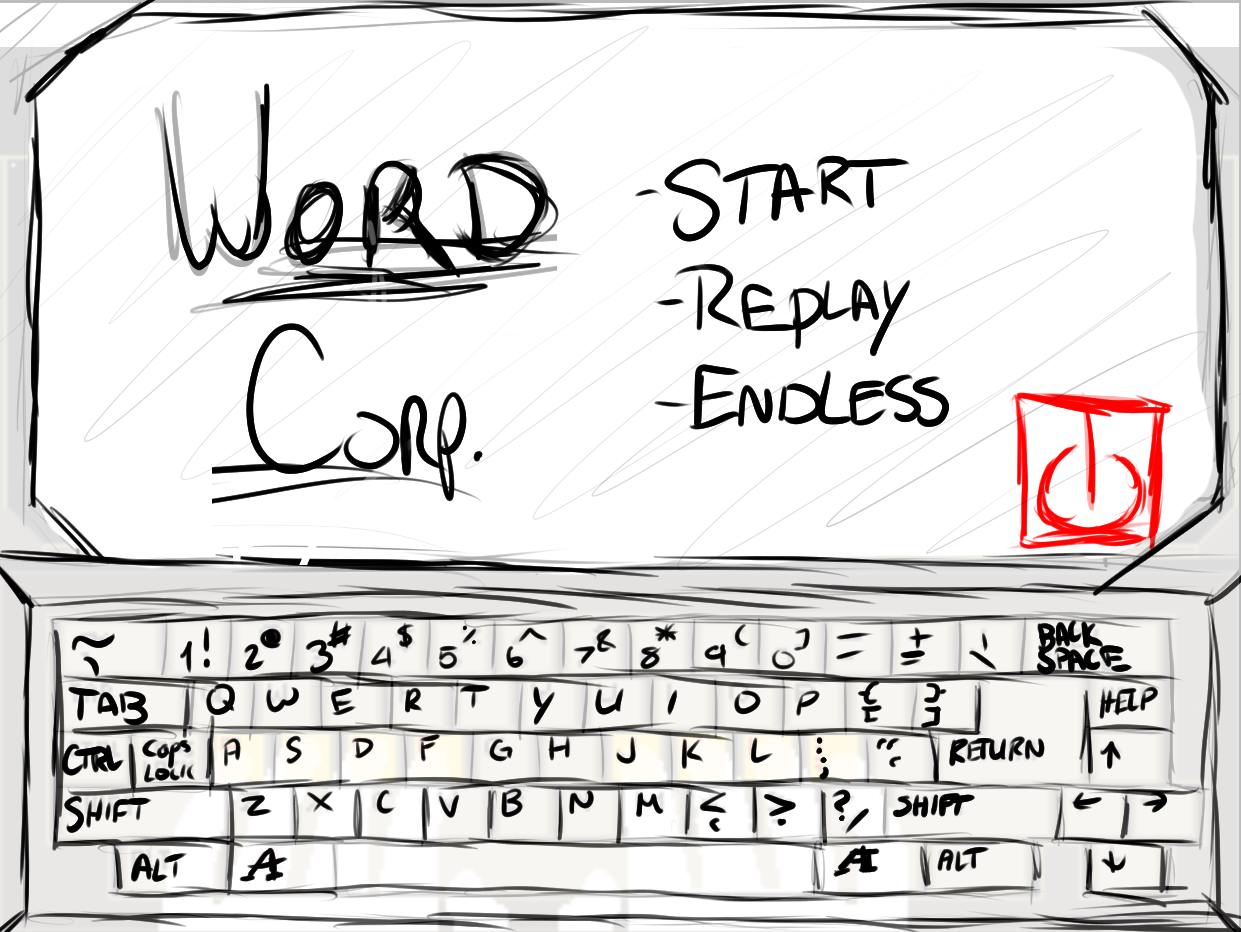 WORD
Corp.
-START
-REPLAY
-ENDLESS
~ 1! 2@ 3# 4$ 5% 6^ 7& 8* 9( 0) = ± \ BACK SPACE
TAB Q W E R T Y U I O P {[ }] HELP
CTRL Caps Lock A S D F G H J K L :; "' RETURN ↑
SHIFT Z X C V B N M <, >. ?/ SHIFT ← →
ALT A A ALT ↓